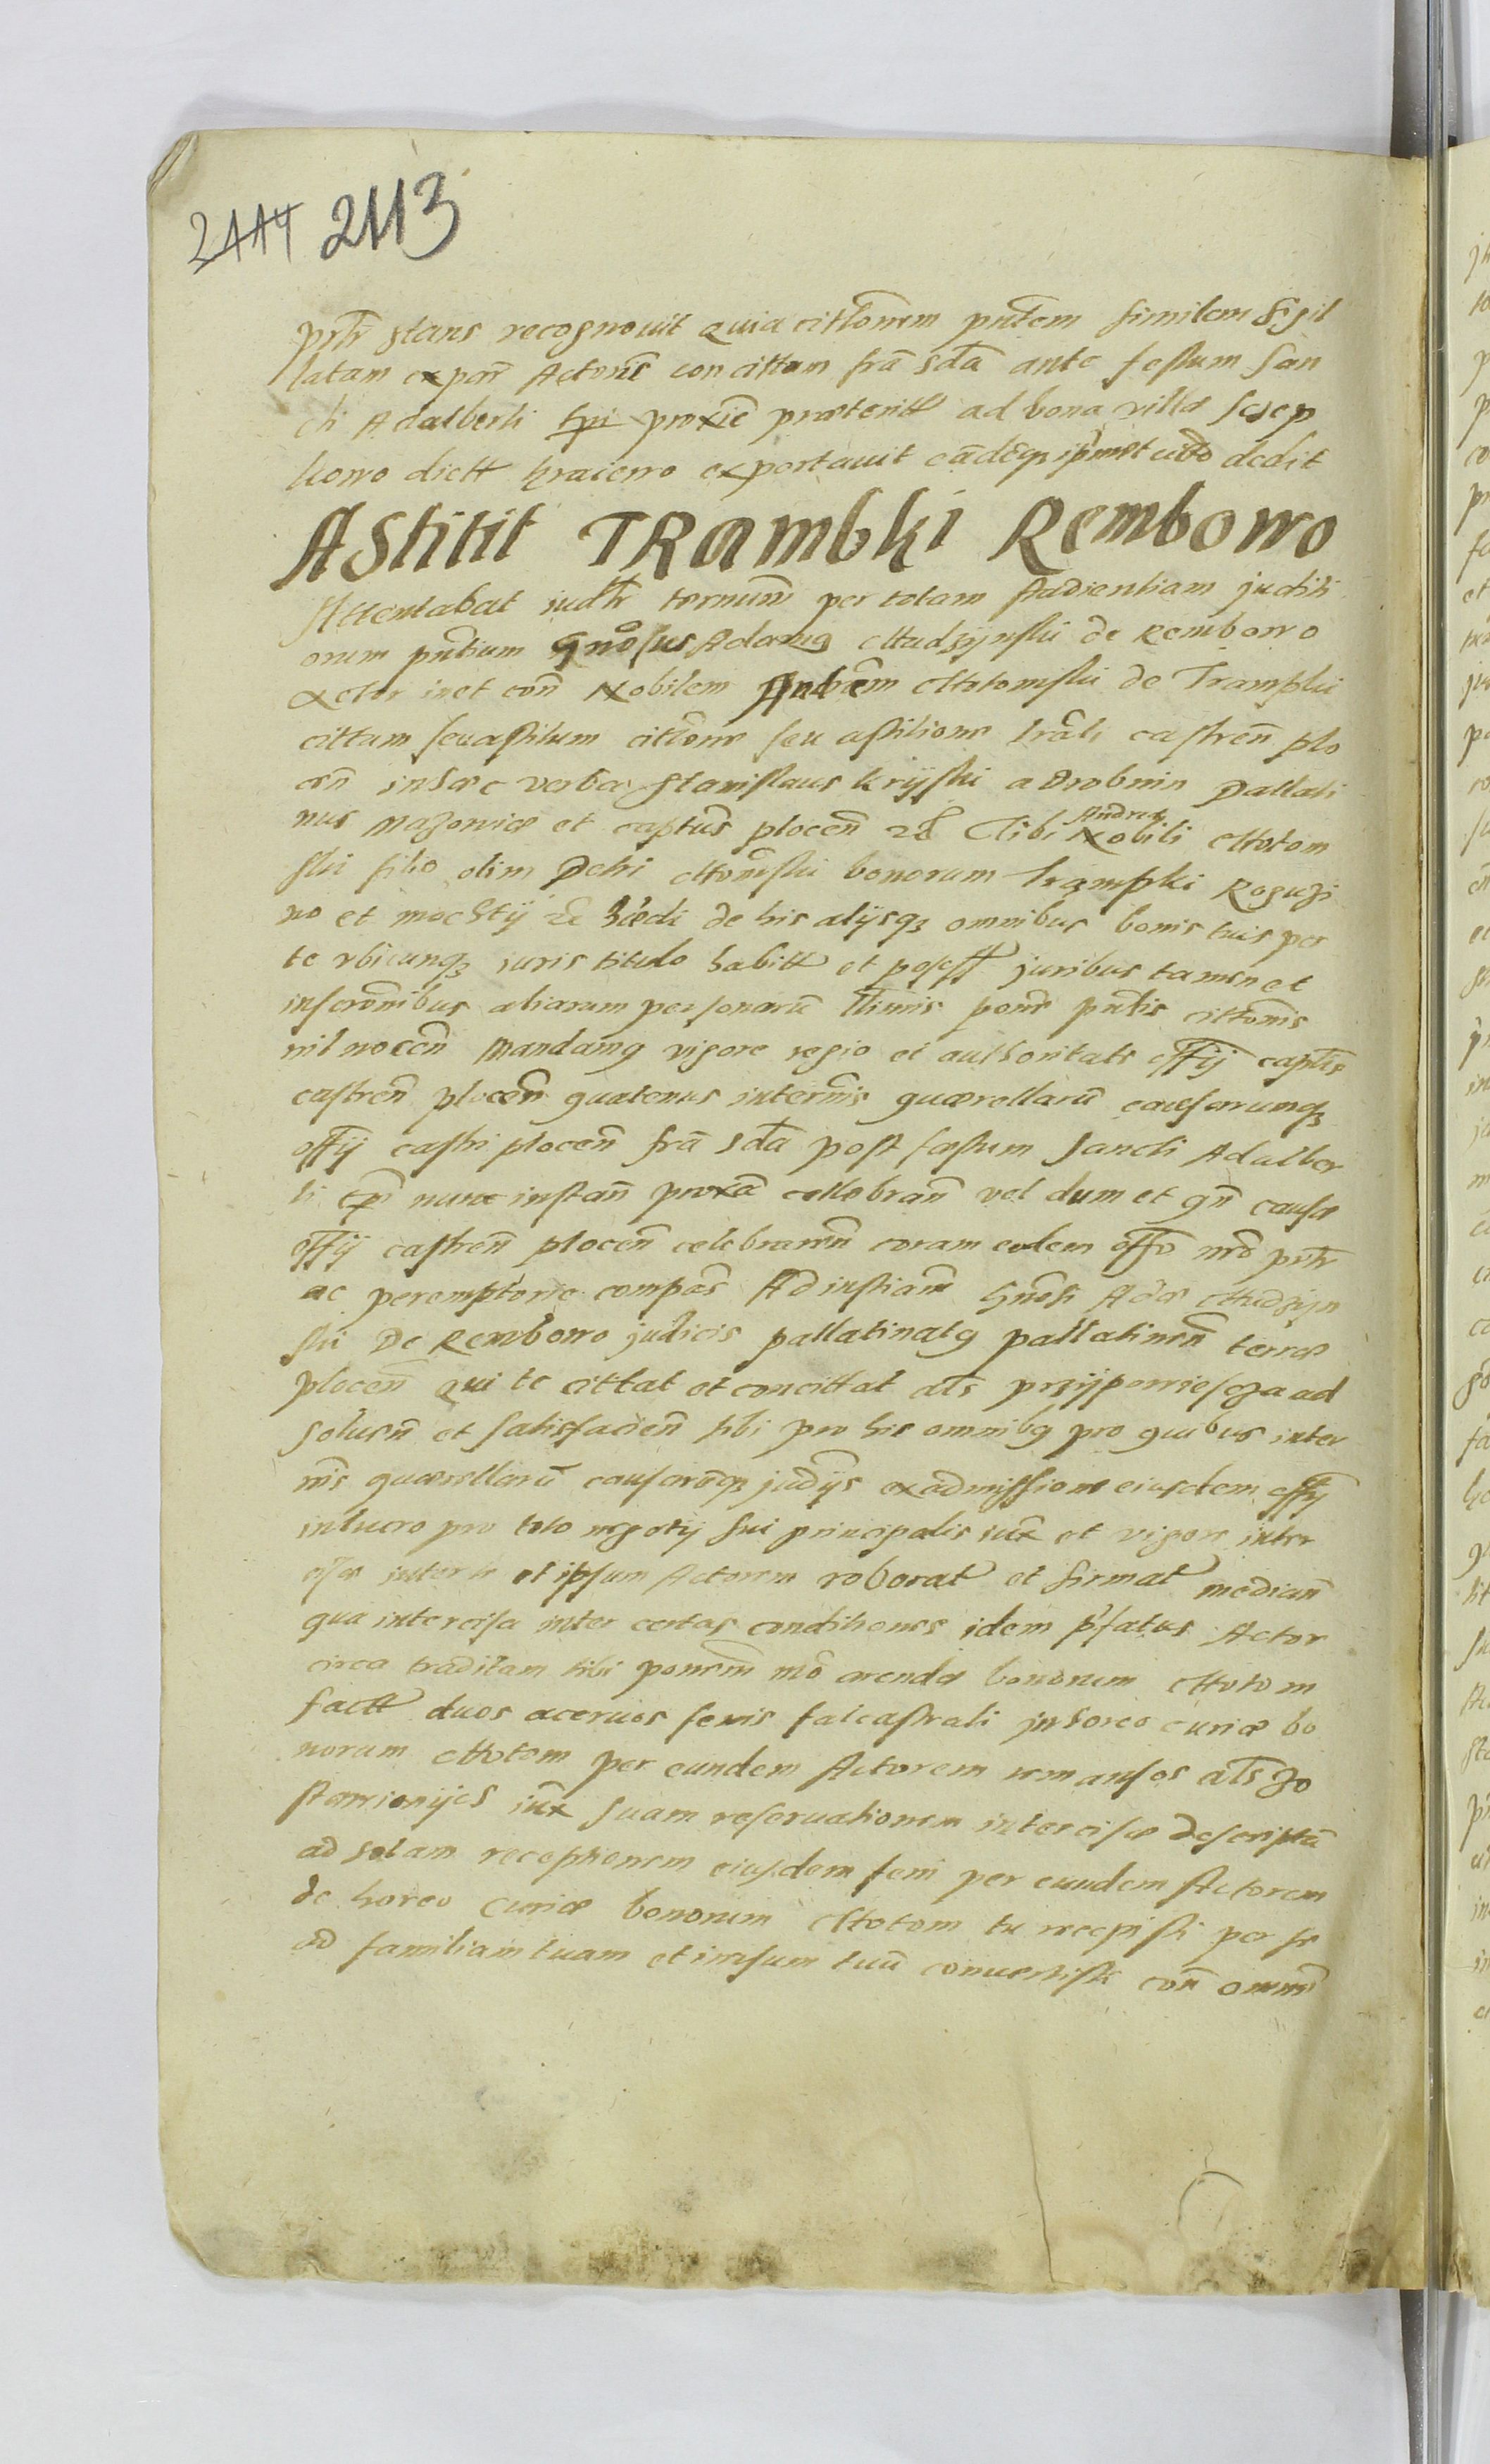 2114 2113
prtr stans recognovit quia cittonem pntem similem sigil
latam ex par Actoris con cittum fra 2da ante festum San
cti Adalberti Epi proxie praeteritt ad bona villae
kowo dictt exportavit eademq ipimet ubo dedit
AStitit TRambki Rembowo
Attentabat iudtr ternum per totam stadientiam juditi
orum pntium Gnosus Adamq Mudzynski de Rembowo
Actor in et con Nobilem Andream Motomski de Trampki
cittum seu astitum cittone seu astitione lrali castren plo
cen in haec verba Stanislaus Kryski a Drobnin Pallati
nus Mazowiae et captus plocen Tibi Nobili Andreae Motom
ski filio olim Petri Motomski bonorum Trampki Roguzi
no et mochty haedi de his alysq omnibus bonis tuis per
te ubicunq iuris titulo habitt et posesst juribus tamen et
inscronibus aliarum personaru ltimis pone pntis cittonis
nil nocen Mandamq vigore regio et authoritate offy captis
castren plocen quatenus in termis quaerellaru causarumq
offy castri plocen fra 2da post festum Sancti Adalber
ti Epi nunc instan proxa cellebran vel dum et qn causae
offy castren plocen celebraren coram eodem offo nro prtr
ac peremptorie compas Ad instiam Gnosi Adae Mudzyn
ski De Rembowo judicis pallatinatq pallatinen terrae
plocen qui te cittat et concittat als przypowiescza ad
soluen et satisfacien sibi pro his omnibq pro quibus in ter
mis quaerellaru causaruq judiys ex admissione eiusdem offy
in lucro pro toto negoty sui principalis iux et vigore inter
cisae inter te et ipsum Actorem roborat et firmat median
qua intercisa inter certas conditiones idem pfatus Actor
circa traditam tibi ponem mo arendae bonorum Motom
factt duos acervos fenis falcastrali in horeo curiae bo
norum Motom per eundem Actorem remansos als zo
stawionyes iux suam reservationem intercisae descriptu
ad solam receptionem eiusdem feni per eundem Actorem
de horeo Curiae bonorum Motom tu recepisti per se
ad familiam tuam et in usum tuu convertisti con omne